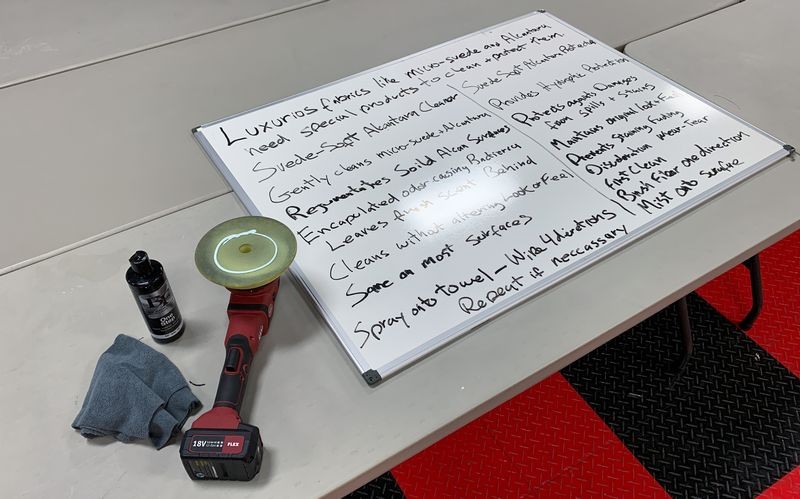 Luxurios fabrics like micro-suede and Alcantara
need special products to clean + protect them
Suede-Soft Alcantara Cleaner
Gently cleans micro-suede + Alcantara
Rejuvenates Soild Alcan Surfaces
Encapsulated odor-causing Bacteria
Leaves Fresh scent Behind
Cleans without altering Look or Feel
Safe on most surfaces
Spray onto towel - Wipe 4 directions
Repeat if neccassary
Suede-Soft Alcantara Protectant
Provides Hydrophobic Protection
Protects against Damages
from spills + stains
Maintains original look + Feel
Prevents Staining, Fading
Discoloration wear-Tear
First Clean
Brush Fiber one direction
Mist onto surface
One
Step
18V
FLEX